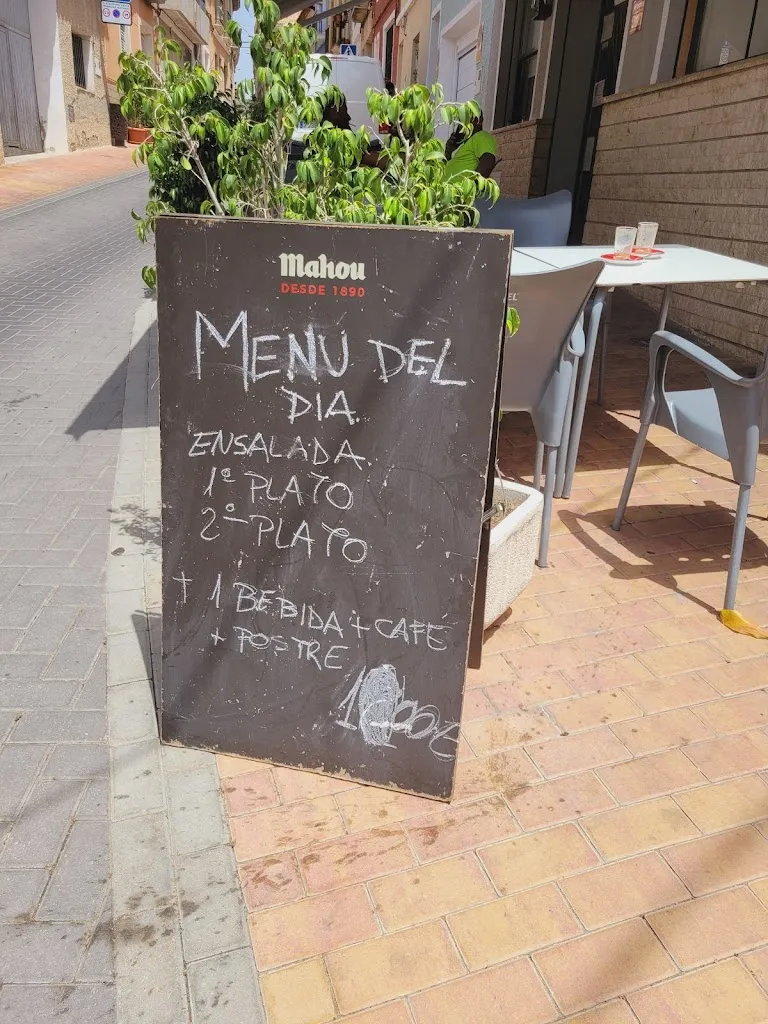 Mahou
DESDE 1890
MENU DEL
DIA
ENSALADA
1º PLATO
2º PLATO
+ 1 BEBIDA + CAFÉ
+ POSTRE